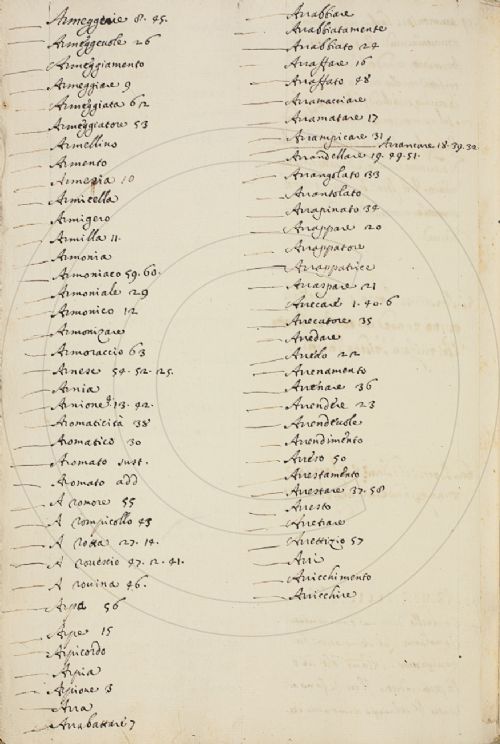 Armeggerie 8. 45.
Armeggevole 26
Armeggiamento
Armeggiare 9
Armeggiata 62
Armeggiatore 53
Armellino
Armento
Armeria 10
Armicella
Armigero
Armilla 11.
Armonia
Armoniaco 59. 60.
Armoniale 29
Armonico 12
Armonizare
Armoraccio 63
Arnese 54. 52. 25.
Arnia
Arnione 13. 42.
Aromaticità 38
Aromatico 30
Aromato sust.
Aromato add
A romore 55
A rompicollo 43
A rotta 27. 14.
A rovescio 47. 2. 41.
A rovina 46.
Arpa 56
Arpe 15
Arpicordo
Arpia
Arpione 3
Arra
Arrabattare 7
Arrabbiare
Arrabbiatamente
Arrabbiato 24
Arraffare 16
Arraffato 48
Arramacciare
Arramatare 17
Arrampicare 31
Arrancare 18. 39. 32.
Arrandellare 19. 49. 51.
Arrangolato 33
Arrantolato
Arrapinato 34
Arrappare 20
Arrappatore
Arrappatrice
Arraspare 21
Arrecare 1. 40. 6
Arrecatore 35
Arredare
Arredo 22
Arrenamento
Arrenare 36
Arrendere 23
Arrendevole
Arrendimento
Arreso 50
Arrestamento
Arrestare 37. 58
Arresto
Arretrare
Arrettizio 57
Arri
Arricchimento
Arricchire